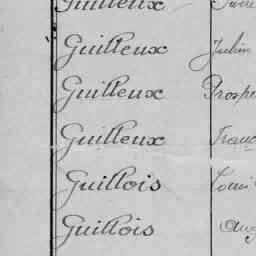 Guilleux
Guilleux Julien
Guilleux Prosper
Guilleux
Guillois Louis
Guillois